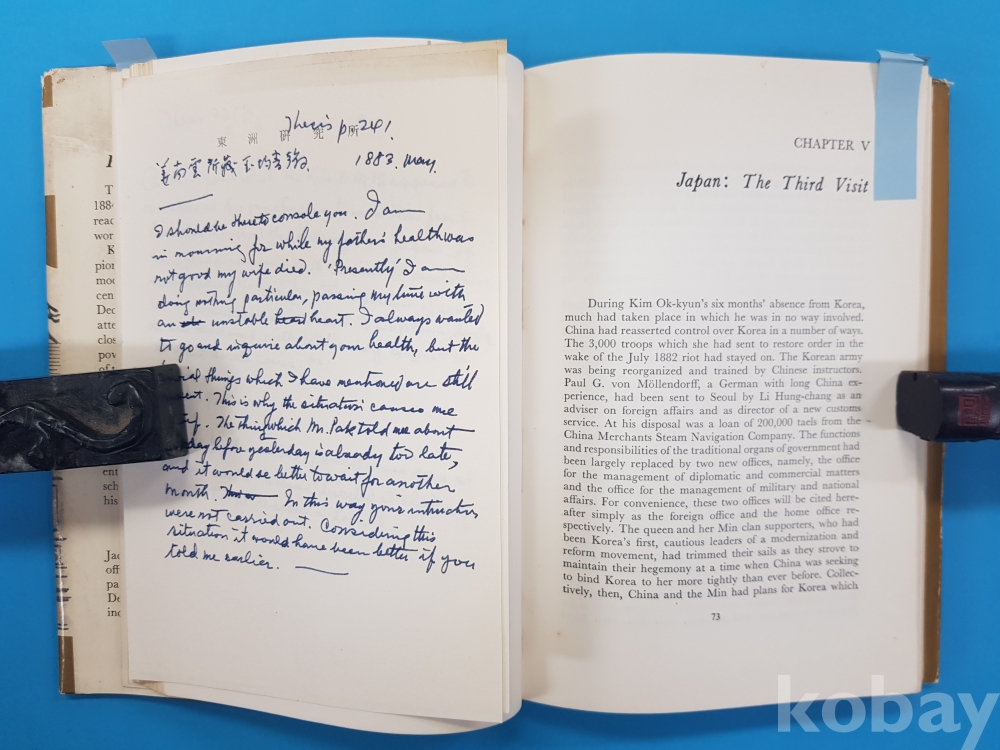 Thesis p 241.
東 洲 研 究 所
姜南雲所藏玉均書翰 1883. May.
I should be there to console you. I am
in mourning for while my father's health was
not good my wife died. 'Presently' I am
doing nothing particular, passing my time with
an unstable heart. I always wanted
to go and inquire about your health, but the
things which I have mentioned are still
This is why the situation causes me
The thing which Mr. Pak told me about
day before yesterday is already too late,
and it would be better to wait for another
month. In this way your instructions
were not carried out. Considering this
situation it would have been better if you
told me earlier.
CHAPTER V
Japan: The Third Visit
During Kim Ok-kyun's six months' absence from Korea,
much had taken place in which he was in no way involved.
China had reasserted control over Korea in a number of ways.
The 3,000 troops which she had sent to restore order in the
wake of the July 1882 riot had stayed on. The Korean army
was being reorganized and trained by Chinese instructors.
Paul G. von Möllendorff, a German with long China ex-
perience, had been sent to Seoul by Li Hung-chang as an
adviser on foreign affairs and as director of a new customs
service. At his disposal was a loan of 200,000 taels from the
China Merchants Steam Navigation Company. The functions
and responsibilities of the traditional organs of government had
been largely replaced by two new offices, namely, the office
for the management of diplomatic and commercial matters
and the office for the management of military and national
affairs. For convenience, these two offices will be cited here-
after simply as the foreign office and the home office re-
spectively. The queen and her Min clan supporters, who had
been Korea's first, cautious leaders of a modernization and
reform movement, had trimmed their sails as they strove to
maintain their hegemony at a time when China was seeking
to bind Korea to her more tightly than ever before. Collec-
tively, then, China and the Min had plans for Korea which
73
kobay